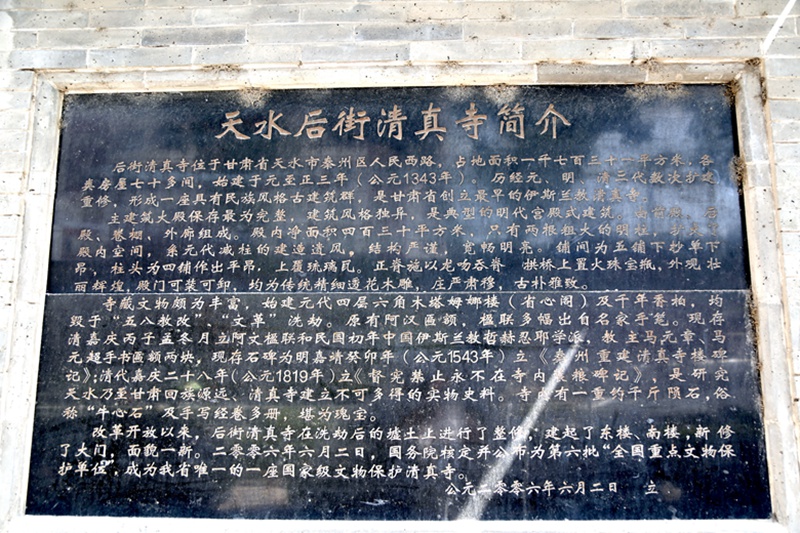 天水后街清真寺简介
后街清真寺位于甘肃省天水市秦州区人民西路，占地面积一千七百三十一平方米，各
类房屋七十多间，始建于元至正三年（公元1343年）。历经元、明、清三代数次扩建
重修，形成一座具有民族风格古建筑群，是甘肃省创立最早的伊斯兰教清真寺。
主建筑大殿保存最为完整，建筑风格独异，是典型的明代宫殿式建筑。由前殿、后
殿、卷棚、外廊组成。殿内净面积四百三十平方米，只有两根粗大的明柱，扩大了
殿内空间，系元代减柱的建造遗风，结构严谨，宽畅明亮。铺间为五铺下杪单下
昂，柱头为四铺作出平昂，上覆琉璃瓦。正脊施以龙吻吞脊，拱桥上置火珠宝瓶，外观壮
丽辉煌，殿门可装可卸，均为传统精细透花木雕，庄严肃穆，古朴雅致。
寺藏文物颇为丰富，始建元代四层六角木塔姆娜楼（省心阁）及千年香柏，均
毁于“五八教改”“文革”洗劫。原有阿汉匾额，楹联多幅出自名家手笔。现存
清嘉庆丙子孟冬月立阿文楹联和民国初年中国伊斯兰教哲赫忍耶学派，教主马元章、马
元超手书匾额两块，现存石碑为明嘉靖癸卯年（公元1543年）立《秦州重建清真寺楼碑
记》；清代嘉庆二十八年（公元1819年）立《督宪禁止永不在寺内粮碑记》，是研究
天水乃至甘肃回族源远、清真寺建立不可多得的实物史料。寺内有一重约千斤陨石，俗
称“牛心石”及手写经卷多册，堪为瑰宝。
改革开放以来，后街清真寺在洗劫后的墟土上进行了整修，建起了东楼、南楼；新修
了大门，面貌一新。二零零六年六月二日，国务院核定并公布为第六批“全国重点文物保
护单位”，成为我省唯一的一座国家级文物保护清真寺。
公元二零零六年六月二日 立